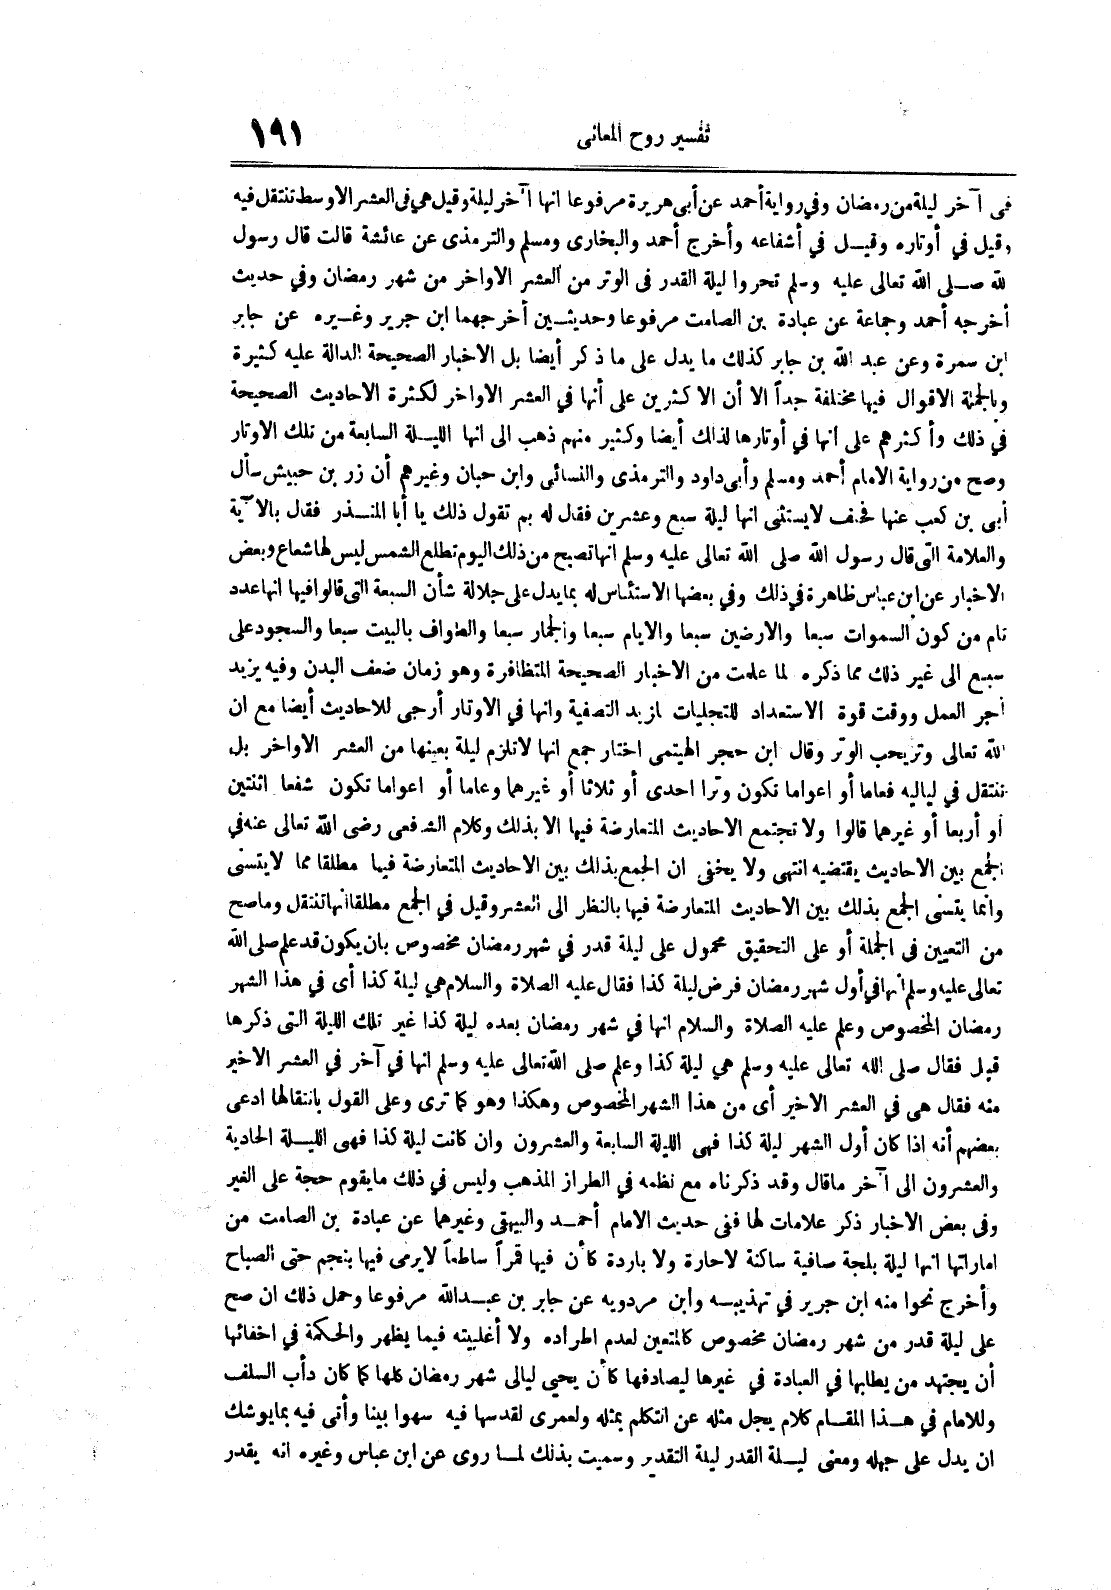 تفسير روح المعانى
١٩١
فى آخر ليلة من رمضان وفي رواية أحمد عن أبى هريرة مرفوعا انها آخر ليلة وقيل هي فى العشر الاوسط تنتقل فيه
وقيل في أوتاره وقيل في أشفاعه وأخرج أحمد والبخارى ومسلم والترمذى عن عائشة قالت قال رسول
لله صلى الله تعالى عليه وسلم تحروا ليلة القدر فى الوتر من العشر الاواخر من شهر رمضان وفي حديث
أخرجه أحمد وجماعة عن عبادة بن الصامت مرفوعا وحديثين أخرجهما ابن جرير وغيره عن جابر
ابن سمرة وعن عبد الله بن جابر كذلك ما يدل على ما ذكر أيضا بل الاخبار الصحيحة الدالة عليه كثيرة
وبالجملة الاقوال فيها مختلفة جداً الا أن الاكثرين على أنها في العشر الاواخر لكثرة الاحاديث الصحيحة
في ذلك وأكثرهم على أنها في أوتارها لذالك أيضا وكثير منهم ذهب الى انها الليلة السابعة من تلك الاوتار
وصح من رواية الامام أحمد ومسلم وأبى داود والترمذى والنسائى وابن حبان وغيرهم أن زر بن حبيش سأل
أبى بن كعب عنها فحلف لا يستثنى انها ليلة سبع وعشرين فقال له بم تقول ذلك يا أبا المنذر فقال بالآية
والعلامة التى قال رسول الله صلى الله تعالى عليه وسلم انها تصبح من ذلك اليوم تطلع الشمس ليس لها شعاع وبعض
الاخبار عن ابن عباس ظاهرة في ذلك وفي بعضها الاستئناس له بما يدل على جلالة شأن السبعة التى قالوا فيها انها عدد
تام من كون السموات سبعا والارضين سبعا والايام سبعا والجمار سبعا والطواف بالبيت سبعا والسجود على
سبع الى غير ذلك مما ذكره لما علمت من الاخبار الصحيحة المتظافرة وهو زمان ضعف البدن وفيه يزيد
أجر العمل ووقت قوة الاستعداد للتجليات لمزيد التصفية وانها في الاوتار أرجى للاحاديث أيضا مع ان
الله تعالى وتر يحب الوتر وقال ابن حجر الهيتمى اختار جمع انها لا تلزم ليلة بعينها من العشر الاواخر بل
تنتقل في لياليه فعاما أو اعواما تكون وترا احدى أو ثلاثا أو غيرهما وعاما أو اعواما تكون شفعا اثنتين
أو أربعا أو غيرهما قالوا ولا تجتمع الاحاديث المتعارضة فيها الا بذلك وكلام الشافعى رضى الله تعالى عنه في
الجمع بين الاحاديث يقتضيه انتهى ولا يخفى ان الجمع بذلك بين الاحاديث المتعارضة فيها مطلقا مما لا يتسنى
وانما يتسنى الجمع بذلك بين الاحاديث المتعارضة فيها بالنظر الى العشر وقيل في الجمع مطلقا انها تنتقل وما صح
من التعيين فى الجملة أو على التحقيق محمول على ليلة قدر في شهر رمضان مخصوص بان يكون قد علم صلى الله
تعالى عليه وسلم انها في أول شهر رمضان فرض ليلة كذا فقال عليه الصلاة والسلام هي ليلة كذا أى في هذا الشهر
رمضان المخصوص وعلم عليه الصلاة والسلام انها في شهر رمضان بعده ليلة كذا غير تلك الليلة التى ذكرها
قبل فقال صلى الله تعالى عليه وسلم هي ليلة كذا وعلم صلى الله تعالى عليه وسلم انها في آخر في العشر الاخير
منه فقال هى في العشر الاخير أى من هذا الشهر المخصوص وهكذا وهو كما ترى وعلى القول بانتقالها ادعى
بعضهم أنه اذا كان أول الشهر ليلة كذا فهى الليلة السابعة والعشرون وان كانت ليلة كذا فهى الليلة الحادية
والعشرون الى آخر ما قال وقد ذكرناه مع نظمه في الطراز المذهب وليس في ذلك ما يقوم حجة على الغير
وفى بعض الاخبار ذكر علامات لها ففى حديث الامام أحمد والبيهقى وغيرهما عن عبادة بن الصامت من
اماراتها انها ليلة بلجة صافية ساكنة لا حارة ولا باردة كأن فيها قمراً ساطعاً لا يرمى فيها بنجم حتى الصباح
وأخرج نحوا منه ابن جرير في تهذيبه وابن مردويه عن جابر بن عبد الله مرفوعا وحمل ذلك ان صح
على ليلة قدر من شهر رمضان مخصوص كالمتعين لعدم اطراده ولا أغلبيته فيما يظهر والحكمة في اخفائها
أن يجتهد من يطلبها في العبادة في غيرها ليصادفها كأن يحيى ليالى شهر رمضان كلها كما كان دأب السلف
وللامام في هذا المقام كلام يجل مثله عن التكلم بمثله ولعمرى لقد سها فيه سهوا بينا وأتى فيه بما يوشك
ان يدل على جهله ومعنى ليلة القدر ليلة التقدير وسميت بذلك لما روى عن ابن عباس وغيره انه يقدر